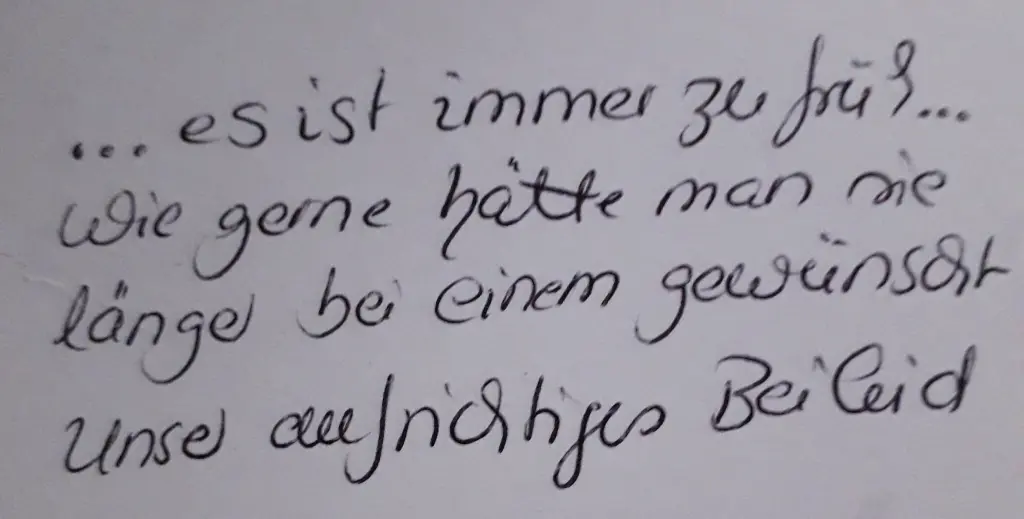 ...es ist immer zu früh...
wie gerne hätte man sie
länger bei einem gewünscht
Unser aufrichtiges Beileid